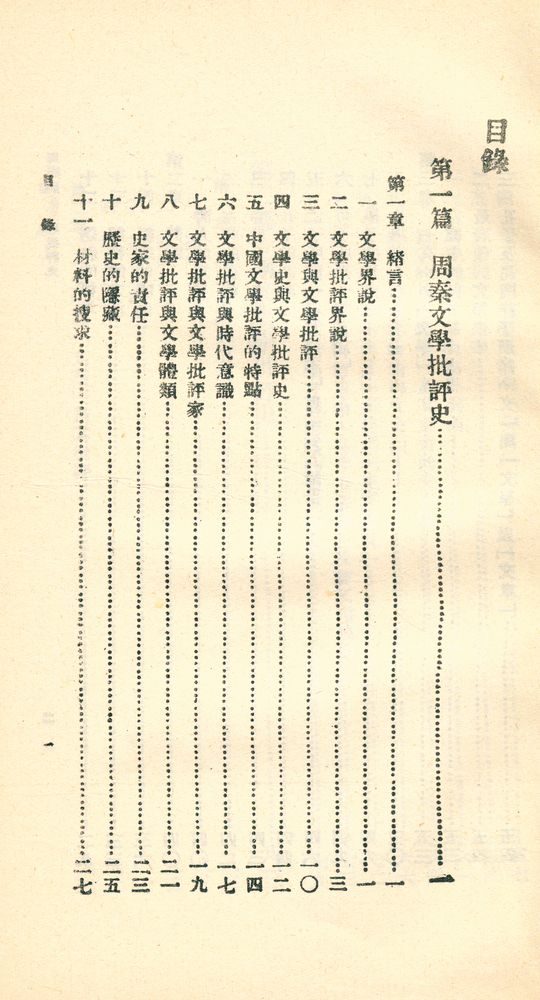 目錄
第一篇 周秦文學批評史 一
第一章 緒言 一
一 文學界說 一
二 文學批評界說 三
三 文學與文學批評 一〇
四 文學史與文學批評史 一二
五 中國文學批評的特點 一四
六 文學批評與時代意識 一七
七 文學批評與文學批評家 一九
八 文學批評與文學體類 二一
九 史家的責任 二三
十 歷史的隱藏 二五
十一 材料的搜求 二七
目錄 一